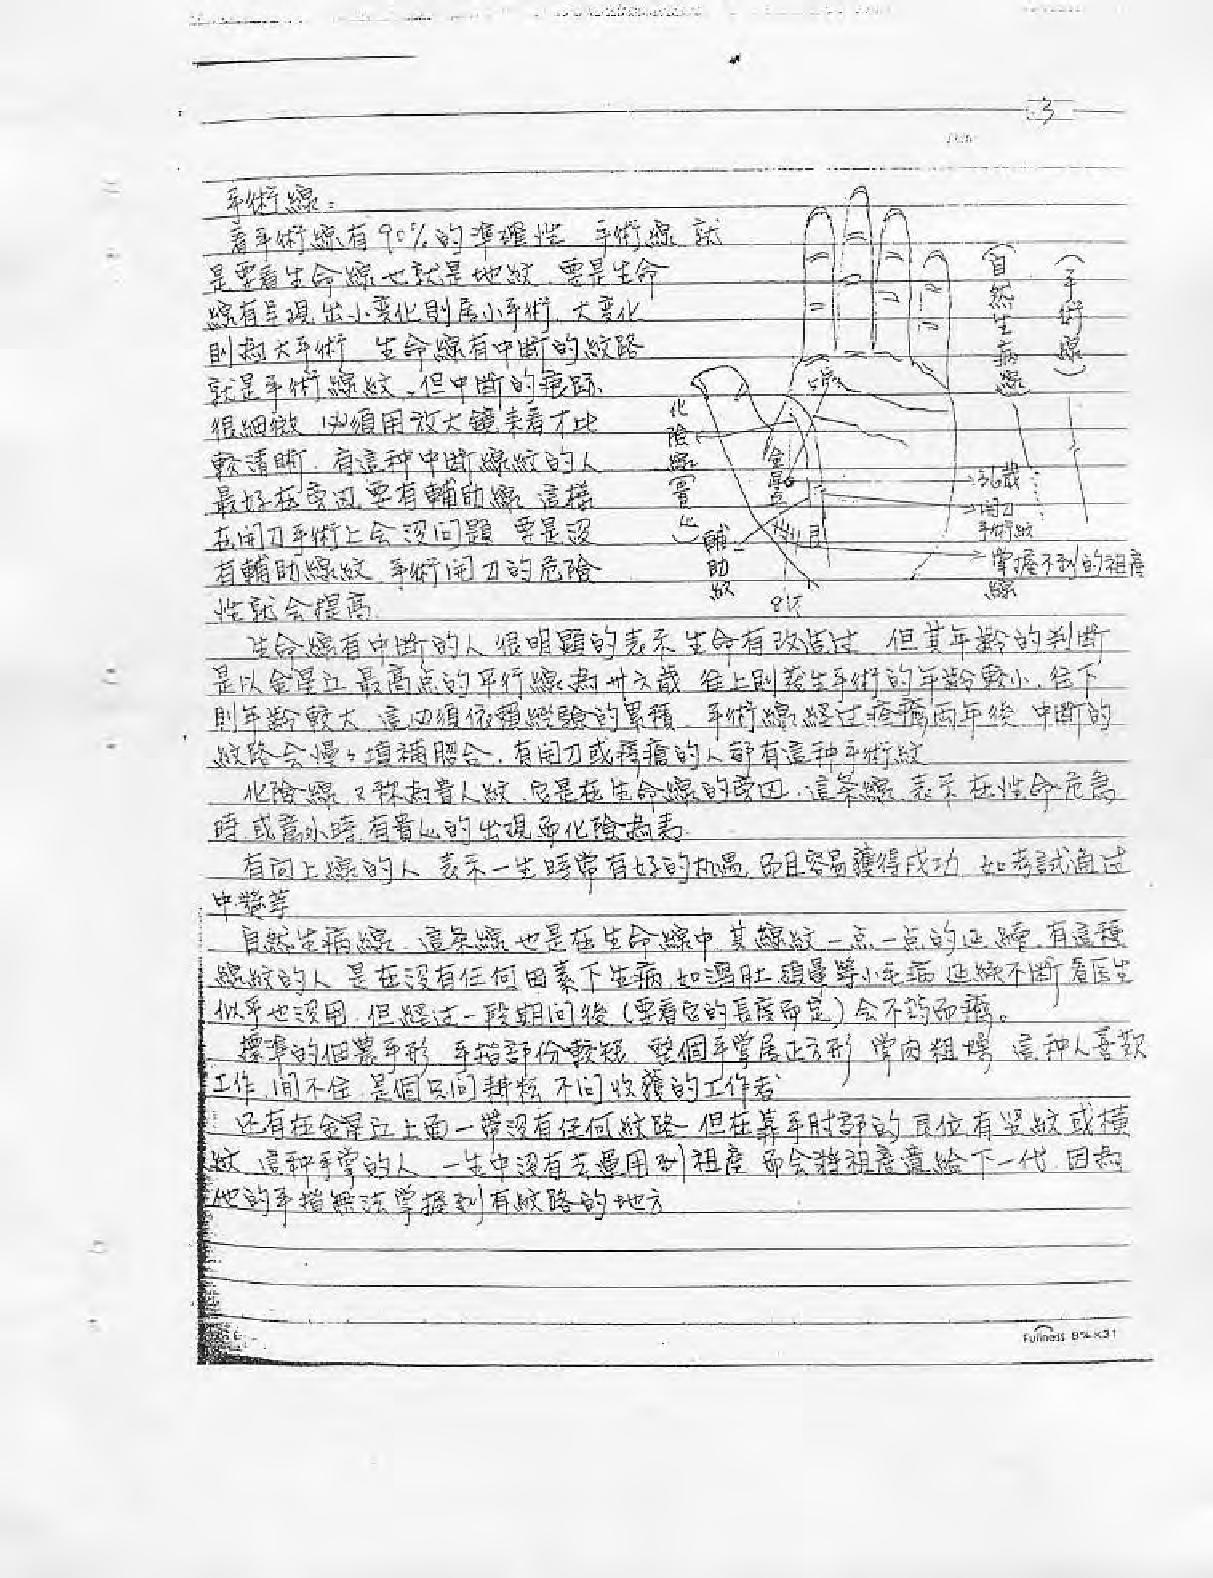 3
手術線：
看手術線有90%的準確性 手術線 就
是要看生命線也就是地紋．要是生命
線有呈現出小变化則居小手術．大变化
則為大手術 生命線有中斷的紋路
就是手術線紋．但中斷的痕跡．
很細微 必須用放大鏡来看才比
較清晰．有這种中斷線紋的人
最好在旁边要有輔助線 這樣
在開刀手術上会沒问題 要是沒
有輔助線紋．手術開刀的危險
性就会提高
(自然生病線)
(手術線)
化險線(貴化)
金星丘
36歲
開刀手術紋
輔助紋
掌握不到的祖產線
生命線有中斷的人 很明顯的表示 生命有改造过 但其年齡的判断
是以金星丘最高点的平行線為卅六歲 往上則發生手術的年齡較小．往下
則年齡較大 這必須依賴经驗的累積．手術線经过痊癒兩年後 中斷的
紋路会慢々填補膠合．有開刀或積癒的人都有這种手術紋
化險線 又称為貴人紋．它是在生命線的旁边．這条線 表示 在性命危急
時 或意外時 有貴人的出現 而化險為夷
有向上線的人 表示一生時常有好的机遇 而且容易獲得成功 如考試通过
中獎等
自然生病線．這条線也是在生命線中 其線紋一点一点的延續．有這種
線紋的人 是在沒有任何因素下生病．如瀉肚．頭暈等小毛病 延續不斷 看医生
似乎也沒用．但经过一段期间後(要看它的長度而定)会不葯而癒。
標準的個農手形 手指部份較短．整個手掌居正方形 掌肉粗壙 這种人喜歡
工作 间不住 是個只问耕耘 不问收獲的工作者
还有在金星丘上面一帶沒有任何紋路 但在靠手肘部的 良位有竖紋或橫
紋．這种手掌的人．一生中沒有去運用到祖產 而会將祖產遺給下一代 因為
他的手指無法掌握到有紋路的地方
Fullness B% K31